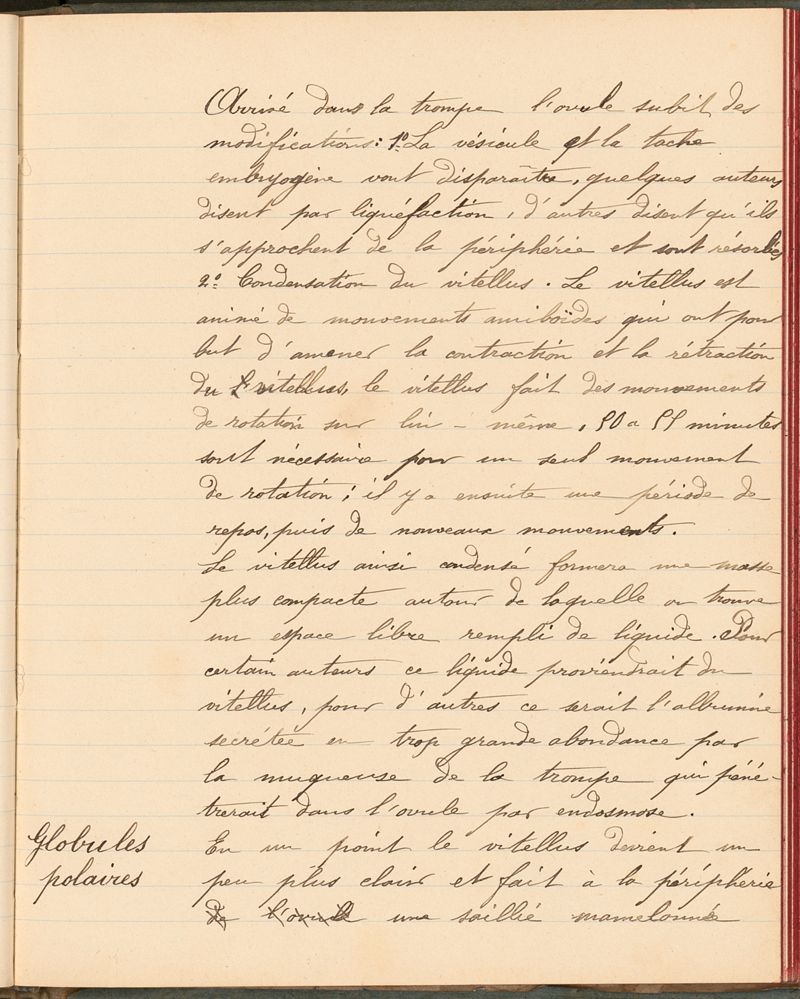 Arrivé dans la trompe l'ovule subit des
modifications: 1º La vésicule et la tache
embryogène vont disparaître, quelques auteurs
disent par liquéfaction, d'autres disent qu'ils
s'approchent de la périphérie et sont résorbées
2º Condensation du vitellus. Le vitellus est
animé de mouvements amiboïdes qui ont pour
but d'amener la contraction et la rétraction
du vitellus, le vitellus fait des mouvements
de rotation sur lui-même, minutes
sont nécessaire pour un seul mouvement
de rotation; il y a ensuite une période de
repos, puis de nouveaux mouvements.
Le vitellus ainsi condensé formera une masse
plus compacte autour de laquelle on trouve
un espace libre rempli de liquide. Pour
certain auteurs ce liquide proviendrait du
vitellus, pour d'autres ce serait l'albumine
secrétée en trop grande abondance par
la muqueuse de la trompe qui péné-
trerait dans l'ovule par endosmose.
Globules
polaires
En un point le vitellus devient un
peu plus clair et fait à la périphérie
de l'ovule une saillie mamelonnée